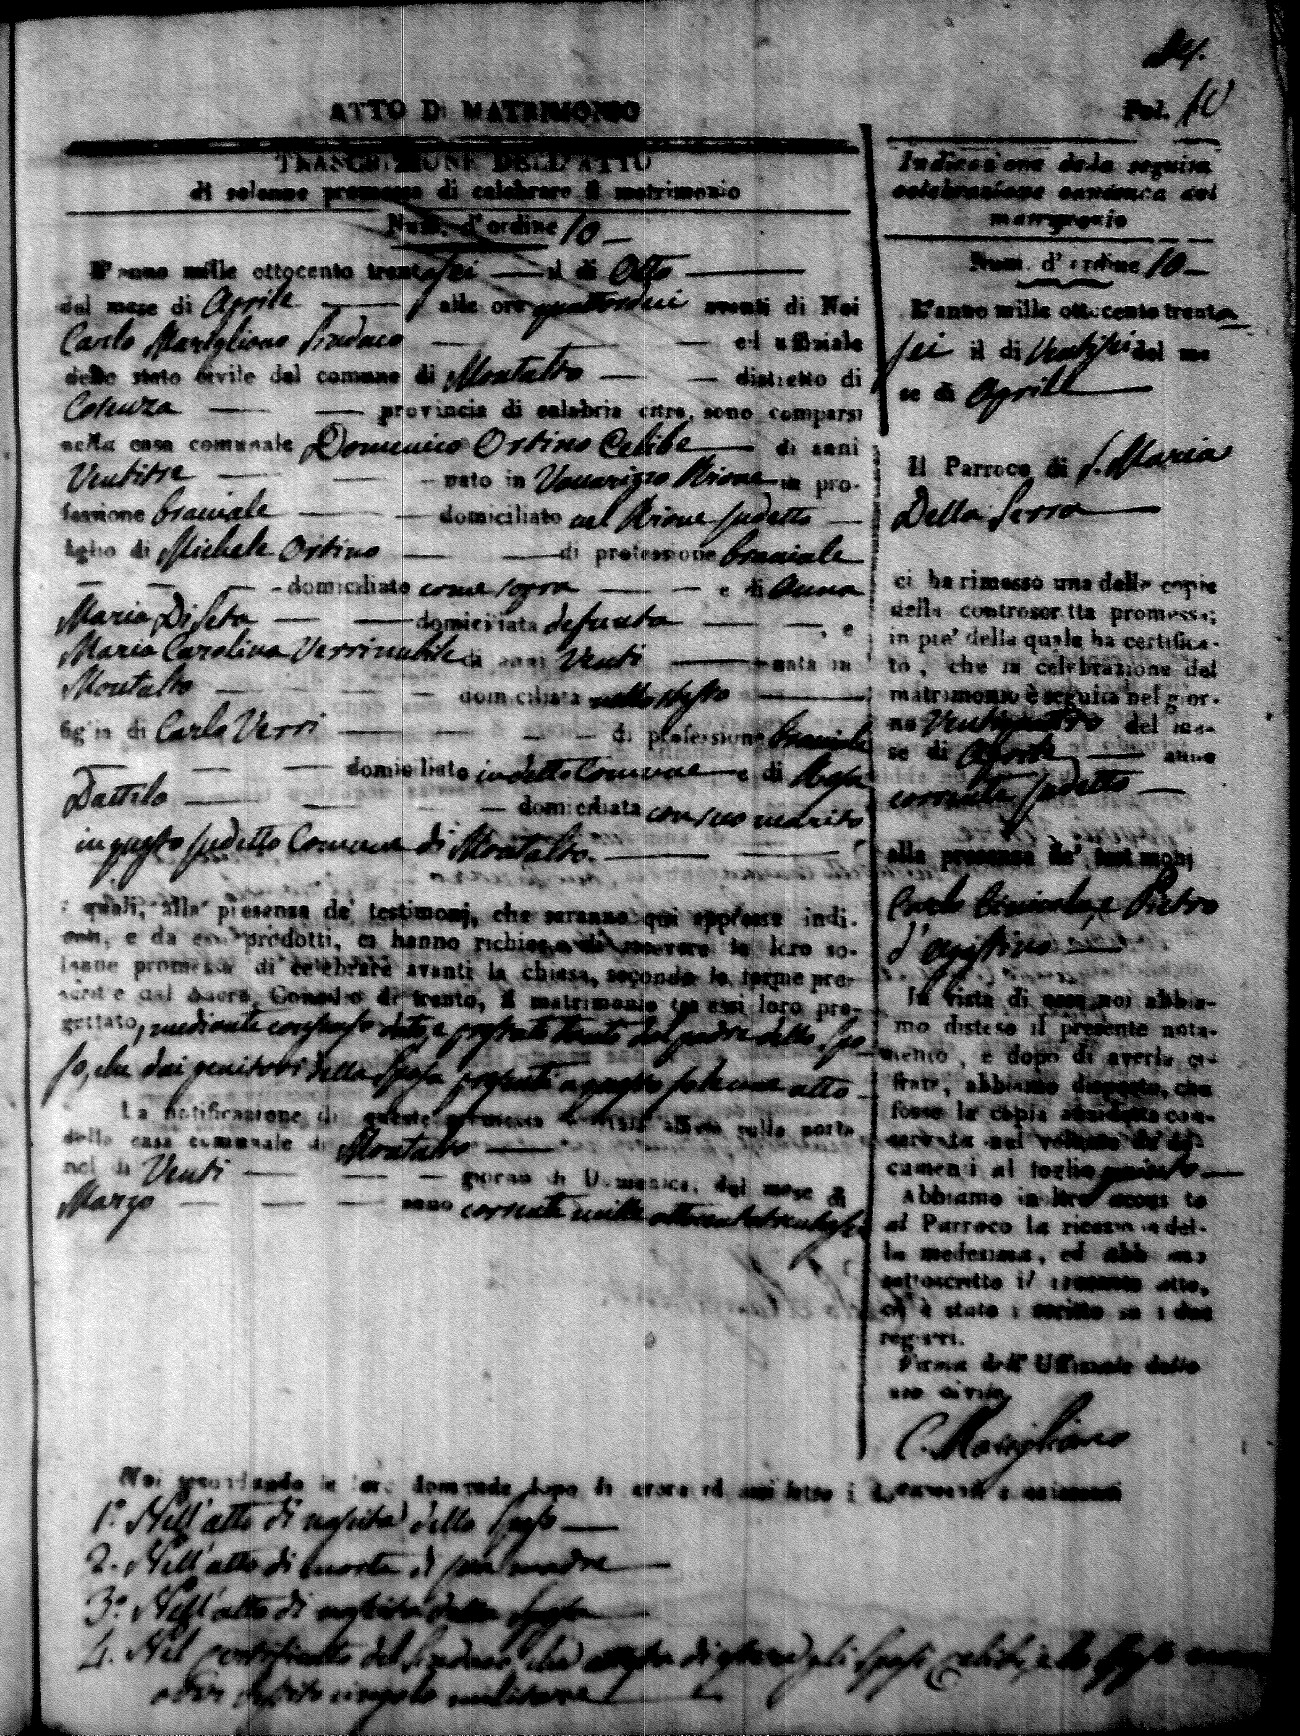 24.
ATTO DI MATRIMONIO
Fol. 10
TRASCRIZIONE DELL'ATTO
di solenne promessa di celebrare il matrimonio
Num. d'ordine 10
L'anno mille ottocento trentasei il di Otto
del mese di Aprile alle ore quattordici avanti di Noi
Carlo Marigliano Sindaco ed uffiziale
dello stato civile del comune di Montalto distretto di
Cosenza provincia di calabria citra, sono comparsi
nella casa comunale Domenico Ortino Celibe di anni
Ventitre nato in Vaccarizzo Rione in pro-
fessione bracciale domiciliato nel Rione sudetto
figlio di Michele Ortino di professione bracciale
domiciliato come sopra e di Anna
Maria Di Seta domiciliata defunta , e
Maria Carolina Verri nubile di anni Venti nata in
Montalto domiciliata nello stesso
figlia di Carlo Verri di professione bracciale
domiciliato in detto Comune e di Rosa
Dattilo domiciliata con suo marito
in questo sudetto Comune di Montalto.
i quali, alla presenza de' testimonj, che saranno qui appresso indi-
cati, e da essi prodotti, ci hanno richiesto di ricevere la loro so-
lenne promessa di celebrare avanti la chiesa, secondo le forme pre-
scritte dal Sacro Concilio di trento, il matrimonio tra essi loro pro-
gettato, mediante consenso dato, e prestato tanto dal padre dello Spo-
so, che dai genitori della Sposa presenti a questo solenne atto
La notificazione di questa promessa è stata affissa sulla porta
della casa comunale di Montalto
nel di Venti giorno di Domenica, del mese di
Marzo anno corrente mille ottocentotrentasei
Indicazione della seguita
celebrazione canonica del
matrimonio
Num. d'ordine 10
L'anno mille ottocento trenta
sei il di Ventisei del me
se di Aprile
Il Parroco di S. Maria
Della Serra
ci ha rimesso una delle copie
della controscritta promessa;
in piè della quale ha certifica-
to, che la celebrazione del
matrimonio è seguita nel gior-
no Ventiquattro del me-
se di Aprile anno
corrente sudetto
alla presenza de' testimonj
Carlo e Pietro
d'Agostino
In vista di essa noi abbia-
mo disteso il presente nota-
mento, e dopo di averla ci-
frata, abbiamo disposto, che
fosse la copia anzidetta con-
servata nel volume de' do-
cumenti al foglio
Abbiamo inoltre accusato
al Parroco la ricezione del-
la medesima, ed abbiamo
sottoscritto il presente atto,
ch' è stato iscritto su i due
registri.
Firma dell' Uffiziale dello
stato civile
C. Marigliano
Noi secondando la loro domanda dopo di avere ad essi letto i documenti consistenti
1.° Nell'atto di nascita dello Sposo
2. Nell'atto di morte di sua madre
3.° Nell'atto di nascita della Sposa
4. Nel certificato del Sindaco che di essere gli Sposi celibi, e lo Sposo